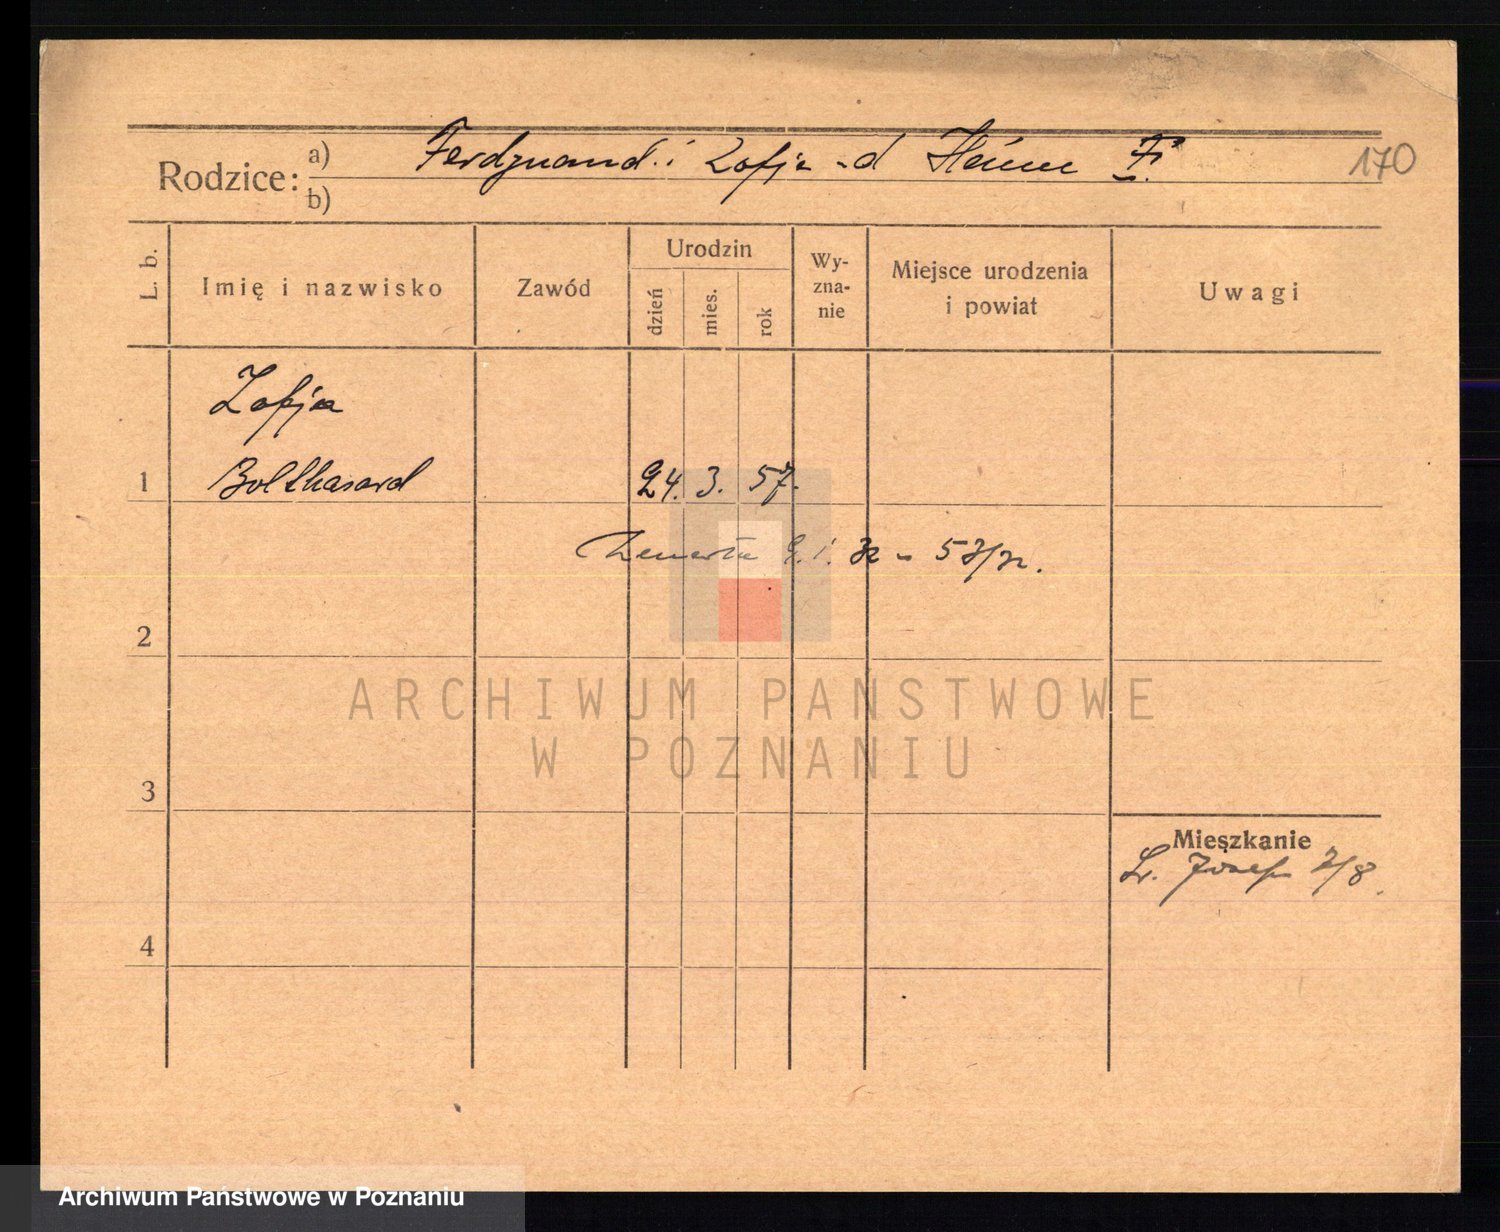 Rodzice: a) Ferdynand i Zofja -d F.
170
b)
L. b.
Imię i nazwisko
Zawód
Urodzin
dzień
mies.
rok
Wy-
zna-
nie
Miejsce urodzenia
i powiat
Uwagi
Zofja
1 Bolthasard 24. 3. 57.
Zmarła 9. 1. 32 - 53/32.
2
ARCHIWUM PAŃSTWOWE
W POZNANIU
3
Mieszkanie
Św. Józefa 7/8
4
Archiwum Państwowe w Poznaniu